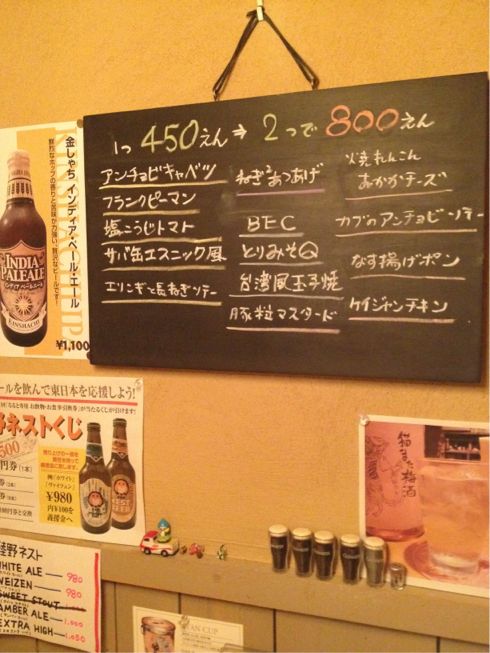 1つ 450えん → 2つで 800えん
アンチョビキャベツ
フランクピーマン
塩こうじトマト
サバ缶エスニック風
エリンギと長ねぎソテー
ねぎまあつあげ
BEC
とりみそQ
台湾風玉子焼
豚粒マスタード
焼れんこん
おかかチーズ
カブのアンチョビソテー
なす揚げポン
ケイジャンチキン
金しゃち インディア・ペール・エール
INDIA
PALE ALE
インディア ペールエール
KINSHACHI
¥1,100
ールを飲んで東日本を応援しよう!
ネストくじ
500
¥980
内¥100を
義援金へ
野ネスト
WHITE ALE — 980
WEIZEN — 980
SWEET STOUT
AMBER ALE — 1,000
EXTRA HIGH — 1,050
猫また梅酒
AN CUP